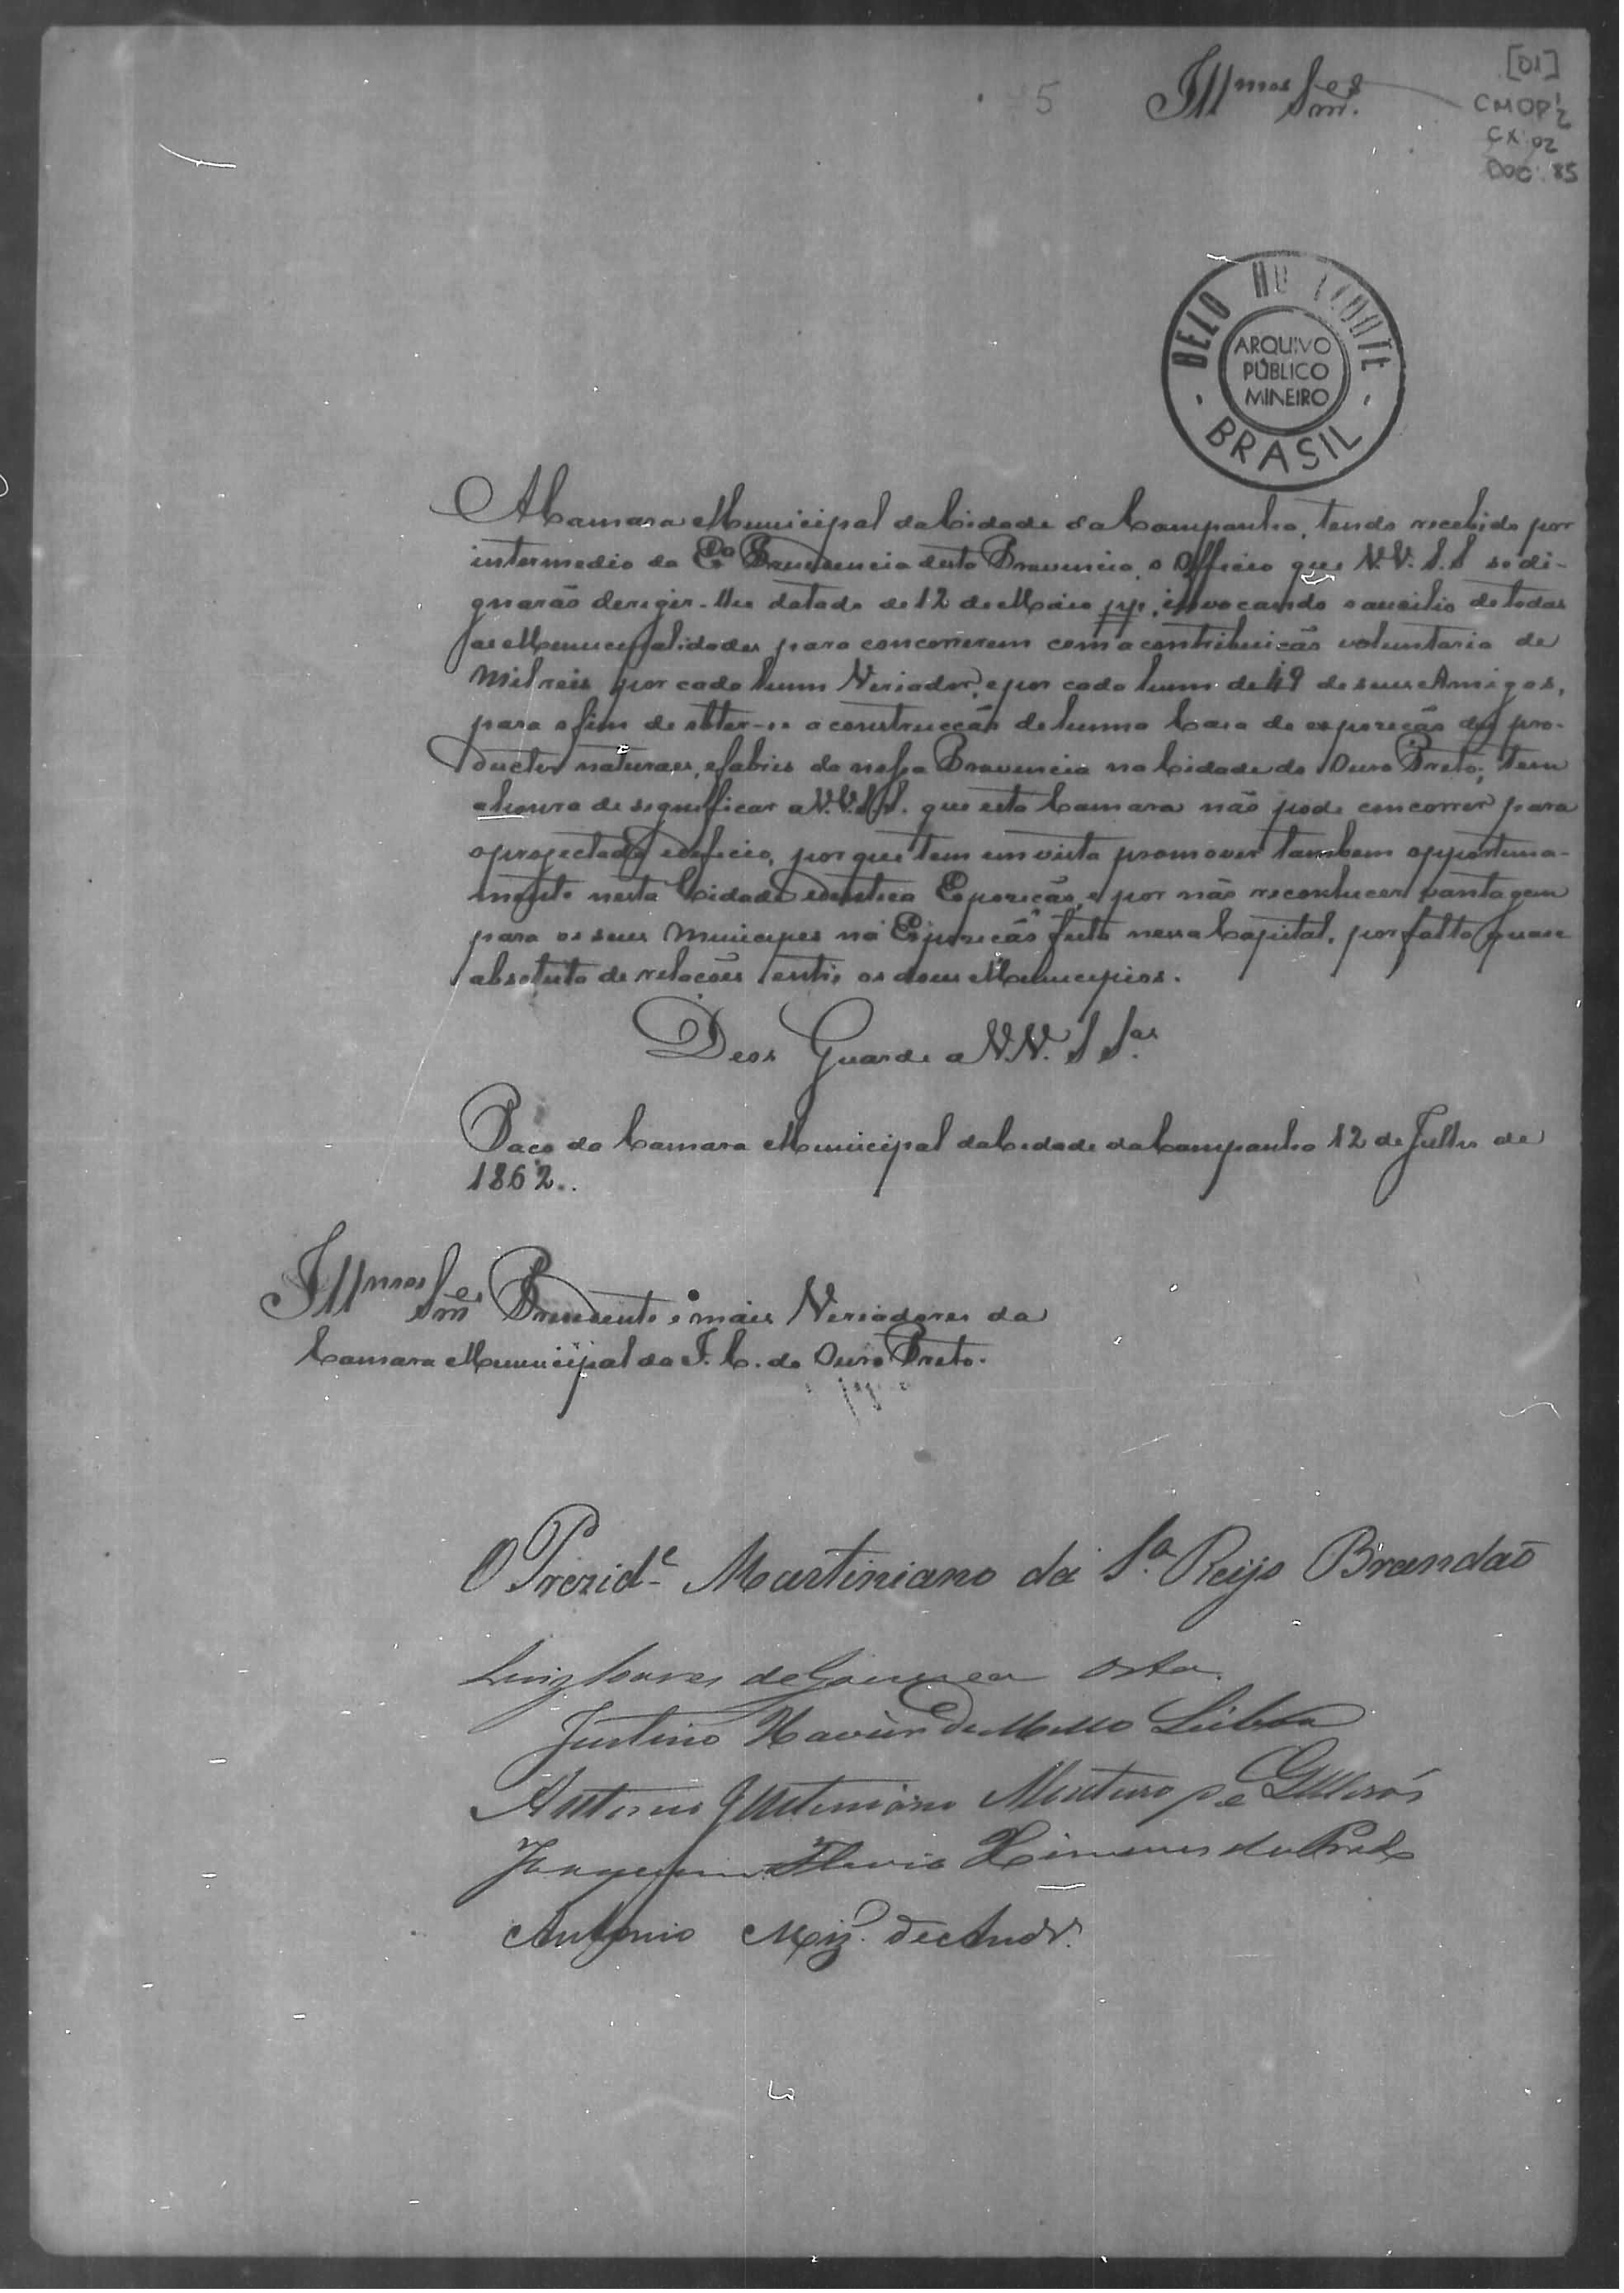 [01]
CMOP 1/2
CX. 02
DOC. 85
5
Illmos Snres.
BELO HORIZONTE
ARQUIVO
PÚBLICO
MINEIRO
BRASIL
A Camara Municipal da Cidade da Campanha, tendo recebido por
intermedio da Exa Presidencia desta Provincia, o Officio que V.V. S.S se di-
gnarão deregir-lhe datado de 12 de Maio pp., invocando o auxilio de todas
as Municipalidades para concorrerem com a contribuição voluntaria de
Mil reis por cada hum Veriador, e por cada hum de 49 de seus Amigos,
para o fim de obter-se a construcção de huma Casa de exposição dos pro-
ductos naturaes, e fabris da nossa Provincia na Cidade do Ouro Preto; tem
a honra de significar a V.V.S.S. que esta Camara não pode concorrer para
o projectado edificio, por que tem em vista promover tambem opportuna-
mente nesta Cidade identica Exposição, e por não reconhecer vantagem
para os seus Municipes na Exposição feita nessa Capital, por falta quasi
absoluta de relações entre os dous Municipios.
Deos Guarde a V.V. S Sas
Paço da Camara Municipal da Cidade da Campanha 12 de Julho de
1862..
Illmos Snres Presidente e mais Veriadores da
Camara Municipal da I. C. do Ouro Preto.
O Prezide Martiniano da Sa Reis Brandão
Luiz Soares de Gouvea Orta.
Justino Xavier de Mello Lisboa
Antonio Justiniano Monteiro de
Joaquim Flavio Ximenes do Prado
Antonio Miz. de Andr.